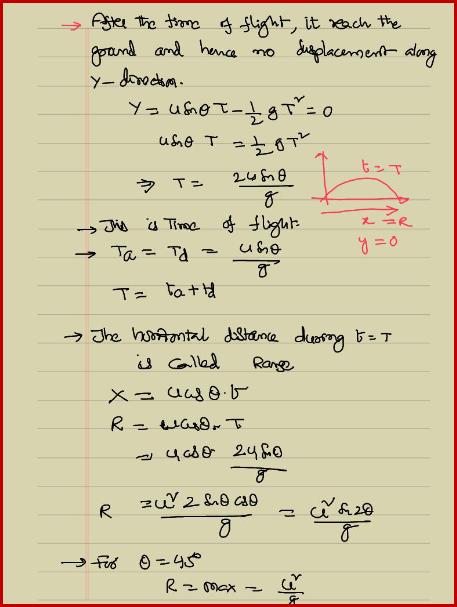 → After the time of flight, it reach the
ground and hence no displacement along
Y-direction.
Y = u sinθ T - 1/2 g T² = 0
u sinθ T = 1/2 g T²
⇒ T = 2u sinθ / g
t = T
x = R
y = 0
→ This is Time of flight.
→ Ta = Td = u sinθ / g
T = ta + td
→ The horizontal distance during t = T
is called Range
X = u cosθ · t
R = u cosθ · T
= u cosθ 2u sinθ / g
R = u² 2 sinθ cosθ / g = u² sin 2θ / g
→ For θ = 45°
R = max = u² / g